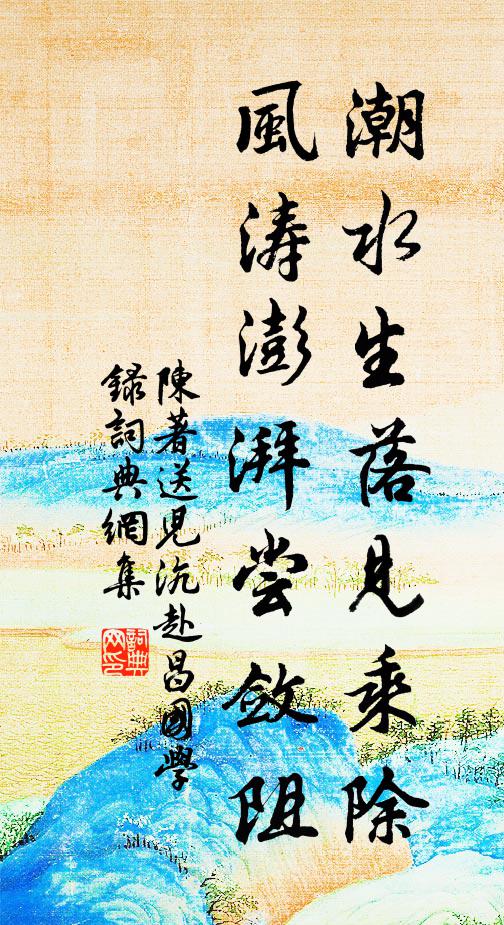 潮水生落見乘除
風濤澎湃嘗斂阻
陳著送兒沆赴昌國學
錄詞典網集
詞典網印